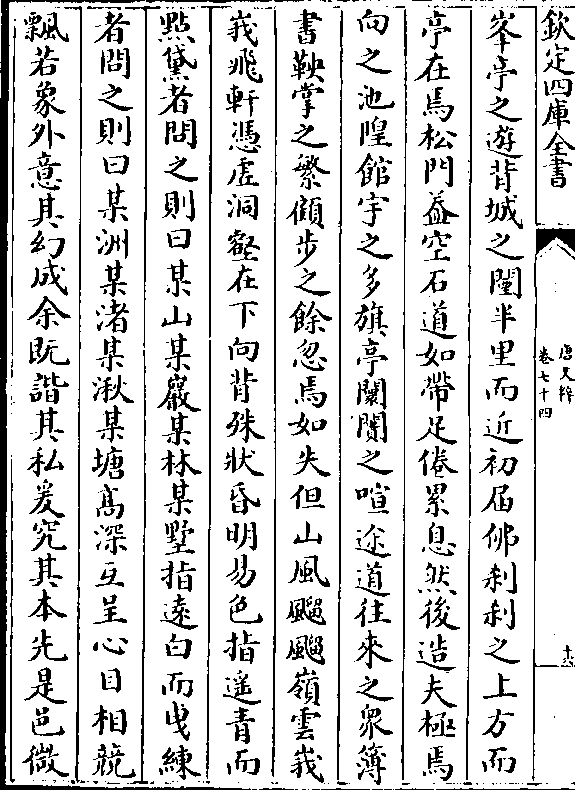 欽定四庫全書
唐文粹
卷七十四
峯亭之遊背城之闉半里而近初届佛刹刹之上方而
亭在焉松門蓋空石道如帶足倦累息然後造夫極焉
向之池隍館宇之多旗亭闤闠之喧途道往來之衆簿
書鞅掌之繁傾步之餘忽焉如失但山風飀飀嶺雲峩
峩飛軒憑虛洞壑在下向背殊狀昏明易色指遙青而
點黛者問之則曰某山某巖某林某墅指遠白而曵練
者問之則曰某洲某渚某湫某塘髙深互呈心目相競
飄若象外意其幻成余既諧其私爰究其本先是邑微